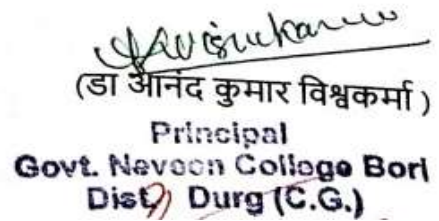 (डा आनंद कुमार विश्वकर्मा )
Principal
Govt. Naveen College Bori
Dist, Durg (C.G.)